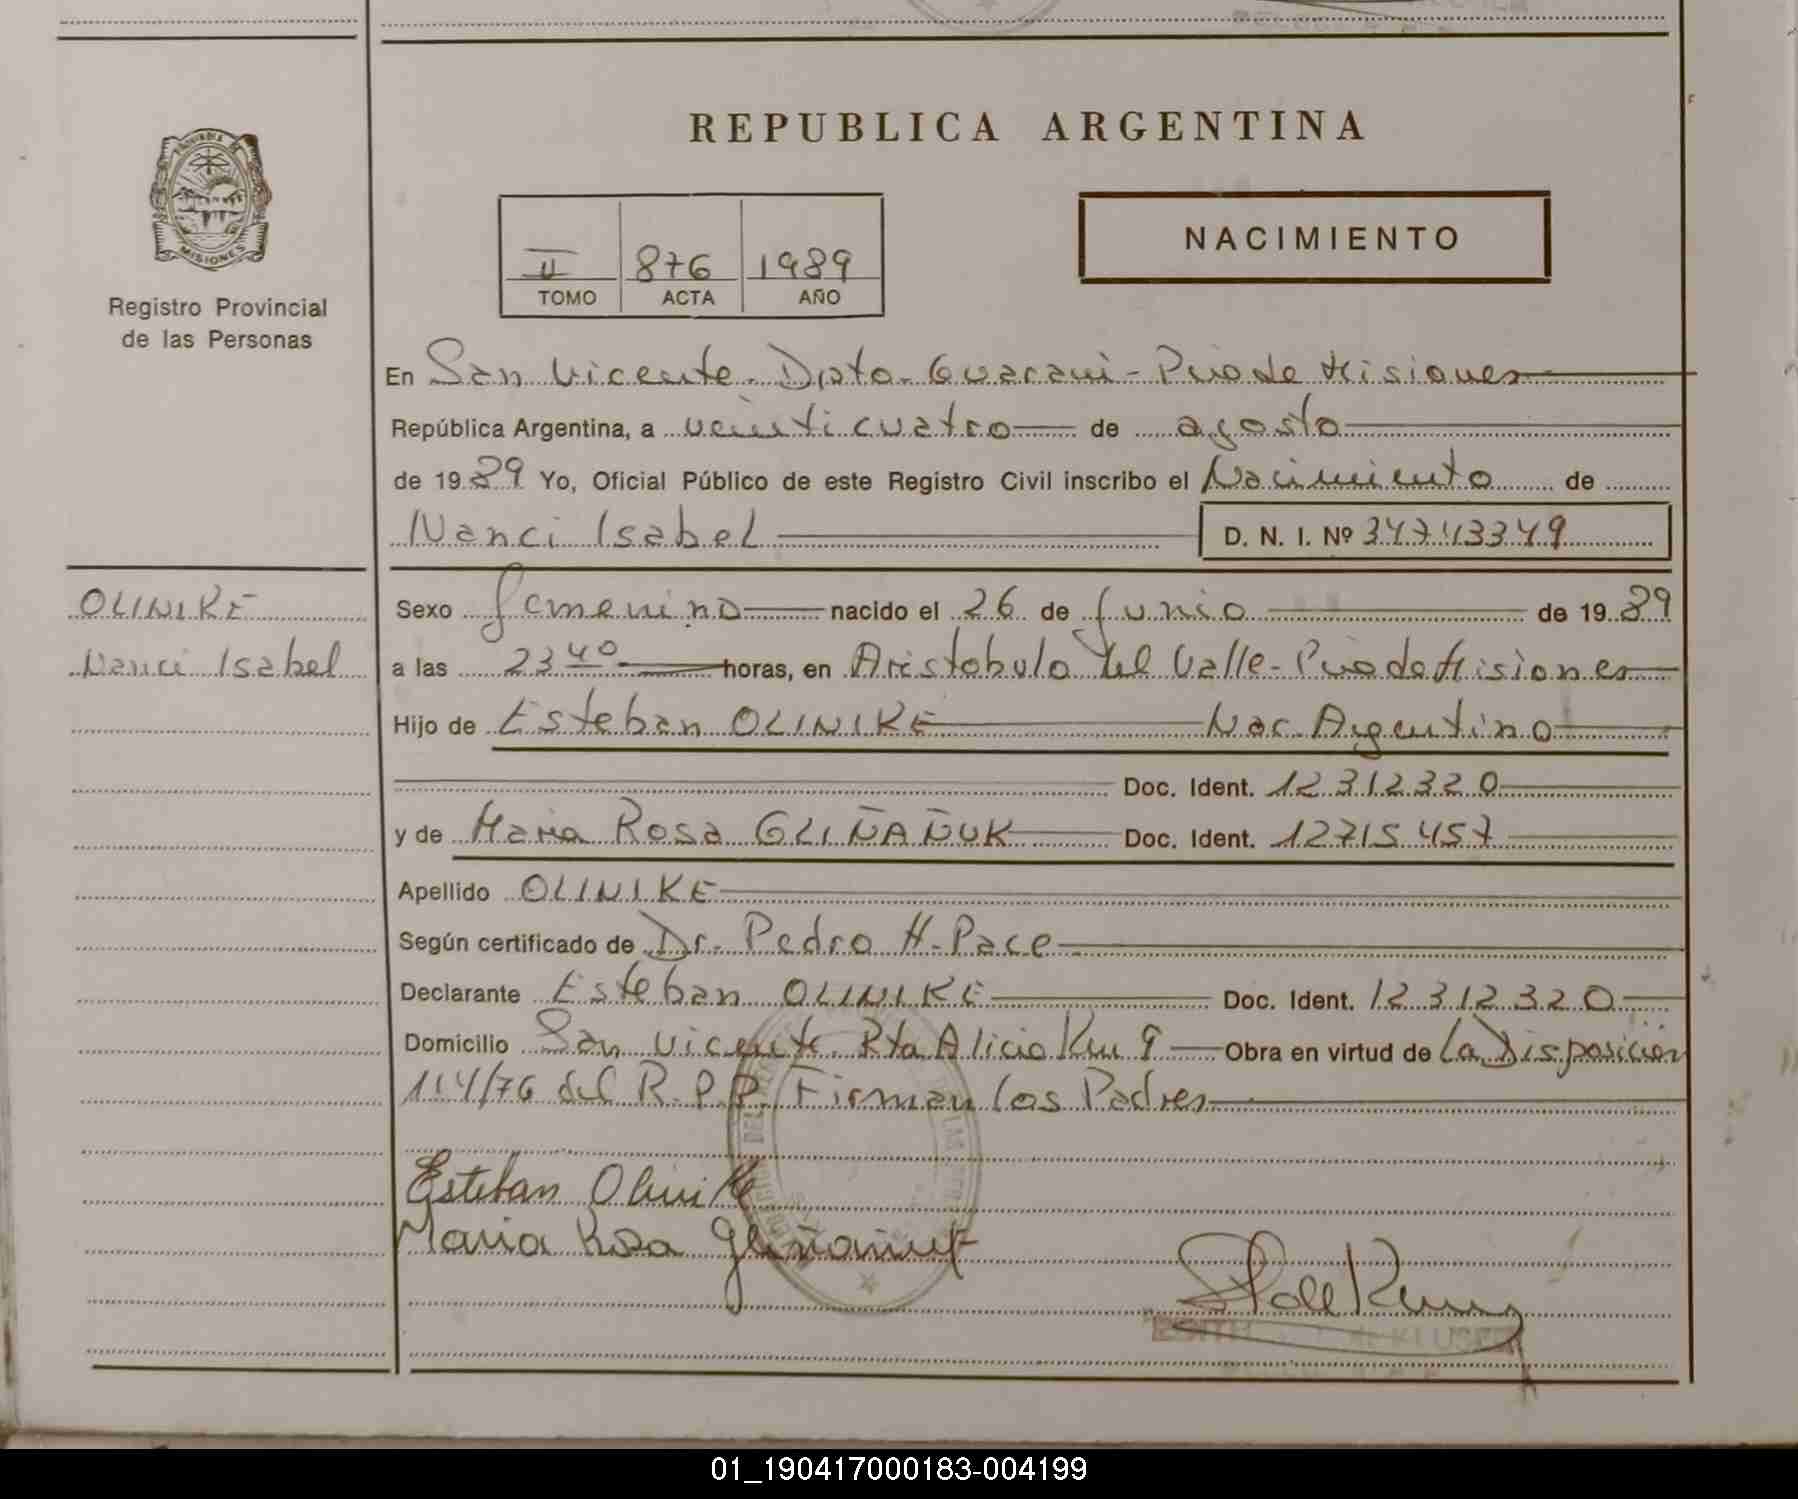 REPUBLICA ARGENTINA
PROVINCIA DE
MISIONES
Registro Provincial
de las Personas
II 876 1989
TOMO ACTA AÑO
NACIMIENTO
En San Vicente - Dpto. Guarani - Pcia de Misiones
República Argentina, a veinticuatro de agosto
de 1989 Yo, Oficial Público de este Registro Civil inscribo el Nacimiento de
Nanci Isabel D. N. I. Nº 34743349
OLINIKE
Nanci Isabel
Sexo femenino nacido el 26 de junio de 1989
a las 23 40 horas, en Aristobulo del Valle - Pcia de Misiones
Hijo de Esteban OLINIKE Nac. Argentino
Doc. Ident. 12312320
y de Maria Rosa GLIÑAÑUK Doc. Ident. 12715457
Apellido OLINIKE
Según certificado de Dr. Pedro H. Pace
Declarante Esteban OLINIKE Doc. Ident. 12312320
Domicilio San Vicente Rta Alicia Km 9 Obra en virtud de La Disposición
114/76 del R.P.P. Firman los Padres
Esteban Olinike
Maria Rosa Gliñañuk
EDITH de KLUSE
01_190417000183-004199